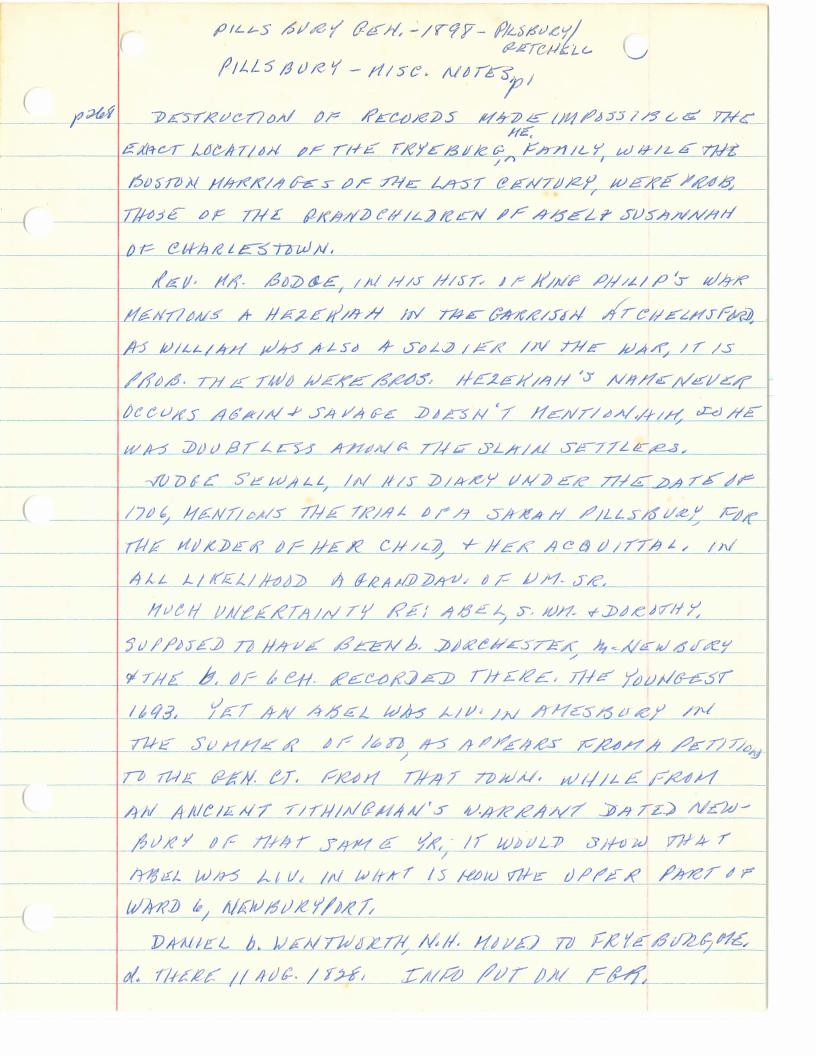 PILLSBURY GEN. - 1898 - PILSBURY/
GETCHELL
PILLSBURY - MISC. NOTES, p1
p268 DESTRUCTION OF RECORDS MADE IMPOSSIBLE THE
EXACT LOCATION OF THE FRYEBURG, ME. FAMILY, WHILE THE
BOSTON MARRIAGES OF THE LAST CENTURY, WERE PROB.
THOSE OF THE GRANDCHILDREN OF ABEL & SUSANNAH
OF CHARLESTOWN.
REV. MR. BODGE, IN HIS HIST. OF KING PHILIP'S WAR
MENTIONS A HEZEKIAH IN THE GARRISON AT CHELMSFORD.
AS WILLIAM WAS ALSO A SOLDIER IN THE WAR, IT IS
PROB. THE TWO WERE BROS. HEZEKIAH'S NAME NEVER
OCCURS AGAIN & SAVAGE DOESN'T MENTION HIM, SO HE
WAS DOUBTLESS AMONG THE SLAIN SETTLERS.
JUDGE SEWALL, IN HIS DIARY UNDER THE DATE OF
1706, MENTIONS THE TRIAL OF A SARAH PILLSBURY, FOR
THE MURDER OF HER CHILD, & HER ACQUITTAL. IN
ALL LIKELIHOOD A GRANDDAU. OF WM. SR.
MUCH UNCERTAINTY RE: ABEL, S. WM. & DOROTHY.
SUPPOSED TO HAVE BEEN b. DORCHESTER, m- NEWBURY
& THE B. OF 6 CH. RECORDED THERE. THE YOUNGEST
1693. YET AN ABEL WAS LIV. IN AMESBURY IN
THE SUMMER OF 1680, AS APPEARS FROM A PETITION
TO THE GEN. CT. FROM THAT TOWN. WHILE FROM
AN ANCIENT TITHINGMAN'S WARRANT DATED NEW-
BURY OF THAT SAME YR., IT WOULD SHOW THAT
ABEL WAS LIV. IN WHAT IS NOW THE UPPER PART OF
WARD 6, NEWBURYPORT.
DANIEL b. WENTWORTH, N.H. MOVED TO FRYEBURG, ME.
d. THERE 11 AUG. 1828. INFO PUT ON FGR.